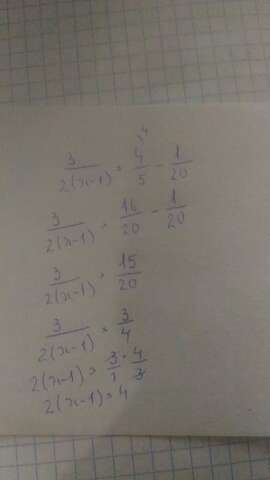 3/2(x-1) = 4/5 - 1/20
3/2(x-1) = 16/20 - 1/20
3/2(x-1) = 15/20
3/2(x-1) = 3/4
2(x-1) = 3/1 · 4/3
2(x-1) = 4